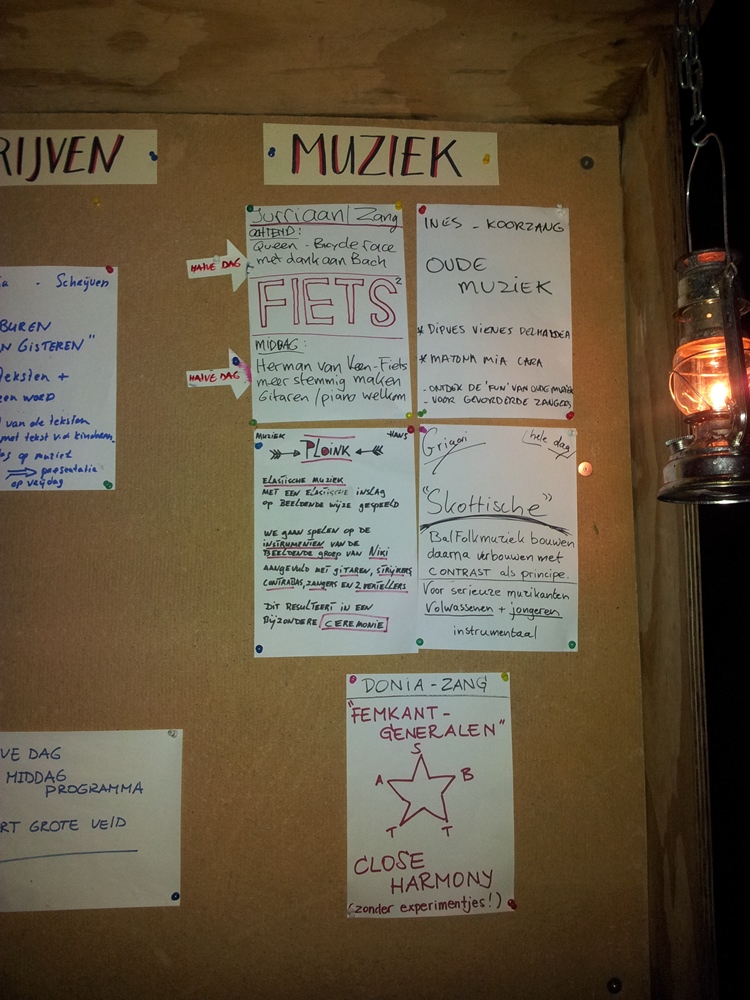 RIJVEN
- Schrijven
BUREN
N GISTEREN"
teksten +
een woord
van de teksten
met tekst v.d. kinderen
op muziek
⇒ presentatie
op vrijdag
VE DAG
MIDDAG
PROGRAMMA
RT GROTE VELD
MUZIEK
HALVE DAG
HALVE DAG
Jurriaan Zang
OCHTEND:
Queen - Bicycle race
met dank aan Bach
FIETS²
MIDDAG:
Herman van Veen - Fiets
meerstemmig maken
Gitaren/piano welkom
INES - KOORZANG
OUDE
MUZIEK
* MATONA MIA CARA
- ONTDEK DE 'FUN' VAN OUDE MUZIEK
- VOOR GEVORDERDE ZANGERS
MUZIEK -HANS
»»→ PLOINK ←««
ELASTISCHE MUZIEK
MET EEN ELASTISCHE INSLAG
OP BEELDENDE WIJZE GESPEELD
WE GAAN SPELEN OP DE
INSTRUMENTEN VAN DE
BEELDENDE GROEP VAN NIKI
AANGEVULD MET GITAREN, STRIJKERS
CONTRABAS, ZANGERS EN
DIT RESULTEERT IN EEN
BIJZONDERE CEREMONIE
Grigori (hele dag)
"Skottische"
Balfolkmuziek bouwen
daarna verbouwen met
CONTRAST als principe.
Voor serieuze muzikanten
Volwassenen + jongeren
instrumentaal
DONIA - ZANG
"FEMKANT-
GENERALEN"
S
A B
T T
CLOSE
HARMONY
(zonder experimentjes!)